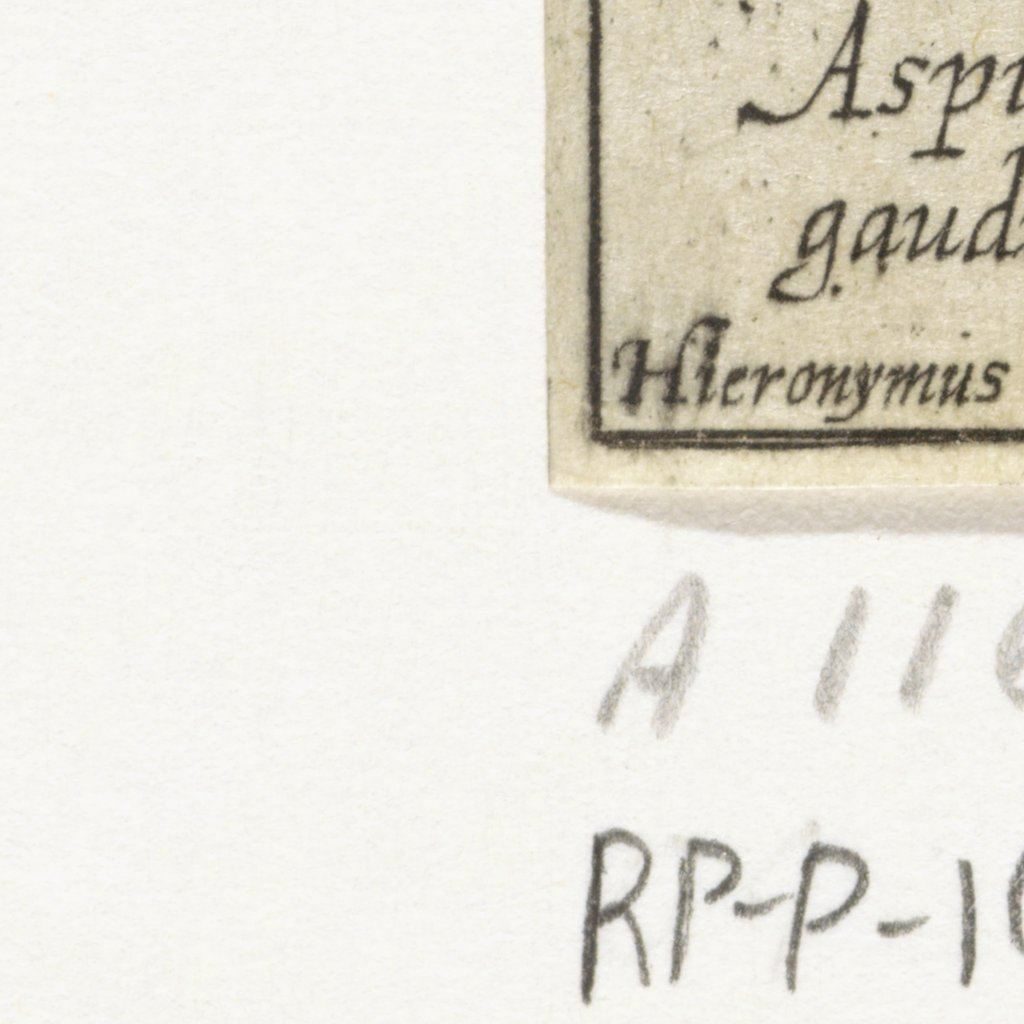 Aspi
gaudi
Hieronymus
A 116
RP-P-10